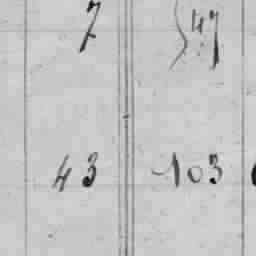 7 547
43 103